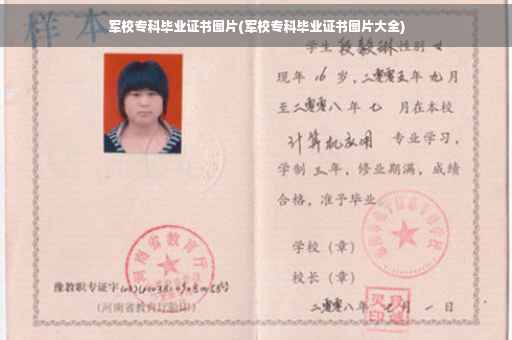 军校专科毕业证书图片(军校专科毕业证书图片大全)
样本
学生 段毅琳 性别 女
现年 16 岁,二零零五年 九月
至二零零八年 七 月在本校
计算机应用 专业学习,
学制 三年,修业期满,成绩
合格,准予毕业
学校(章)
校长(章)
二零零八年 七月 一 日
河南省教育厅
豫教职专证字
(河南省教育厅验印)